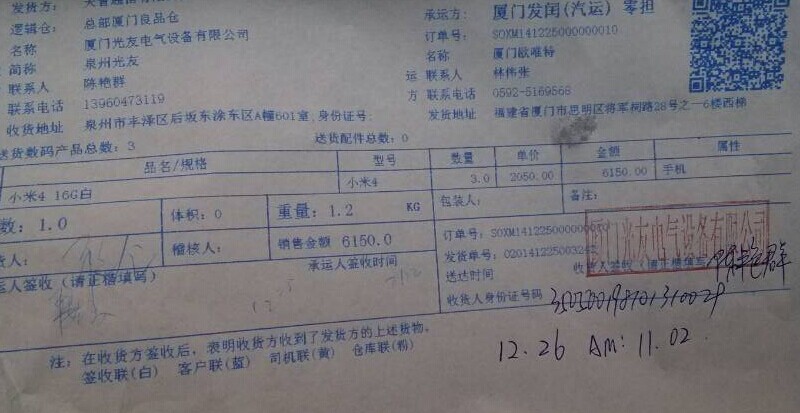 发货方：
承运方： 厦门发闰(汽运) 零担
逻辑仓： 总部厦门良品仓
订单号： SOXM141225000000010
名称 厦门光友电气设备有限公司
名称 厦门欧唯特
简称 泉州光友
联系人 陈艳群
运 联系人 林伟张
联系电话 13960473119
方 联系电话 0592-5169568
收货地址 泉州市丰泽区后坂东涂东区A幢601室.身份证号:
发货地址 福建省厦门市思明区将军祠路28号之一6楼西梯
送货数码产品总数: 3 送货配件总数: 0
品名/规格 型号 数量 单价 金额 属性
小米4 16G白 小米4 3.0 2050.00 6150.00 手机
数: 1.0 体积: 0 重量: 1.2 KG 包装人: 备注:
货人: 稽核人: 销售金额 6150.0
订单号: SOXM141225000000010
发货单号: 020141225003242
运人签收 (请正楷填写) 承运人签收时间
送达时间 收货人签收 (请正楷填写)
厦门光友电气设备有限公司
收货人身份证号码
12.26 AM: 11.02
注: 在收货方签收后，表明收货方收到了发货方的上述货物。
签收联(白) 客户联(蓝) 司机联(黄) 仓库联(粉)